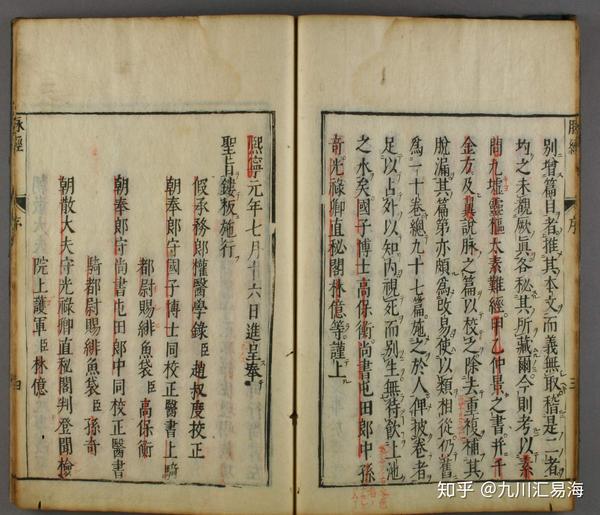 脉經
序
三
別增篇目者推其本文而義無取稽是二者
均之未觀厥眞各秘其所藏爾今則考以素
問九墟靈樞太素難經甲乙仲景之書并千
金方及翼說脉之篇以校之除去重複補其
脫漏其篇第亦頗爲改易使以類相從仍舊
爲一十卷總九十七篇施之於人俾披卷者
足以占外以知內視死而別生無待飲上池
之水矣國子博士高保衡尚書屯田郎中孫
竒光祿卿直秘閣林億等謹上
熙寧元年七月十六日進呈奉
聖旨鏤板施行
假承務郎權醫學錄臣趙叔度校正
朝奉郎守國子博士同校正醫書上騎
都尉賜緋魚袋臣高保衡
朝奉郎守尚書屯田郎中同校正醫書
騎都尉賜緋魚袋臣孫竒
朝散大夫守光祿卿直秘閣判登聞檢
院上護軍臣林億
脉經
序
四
知乎 @九川汇易海